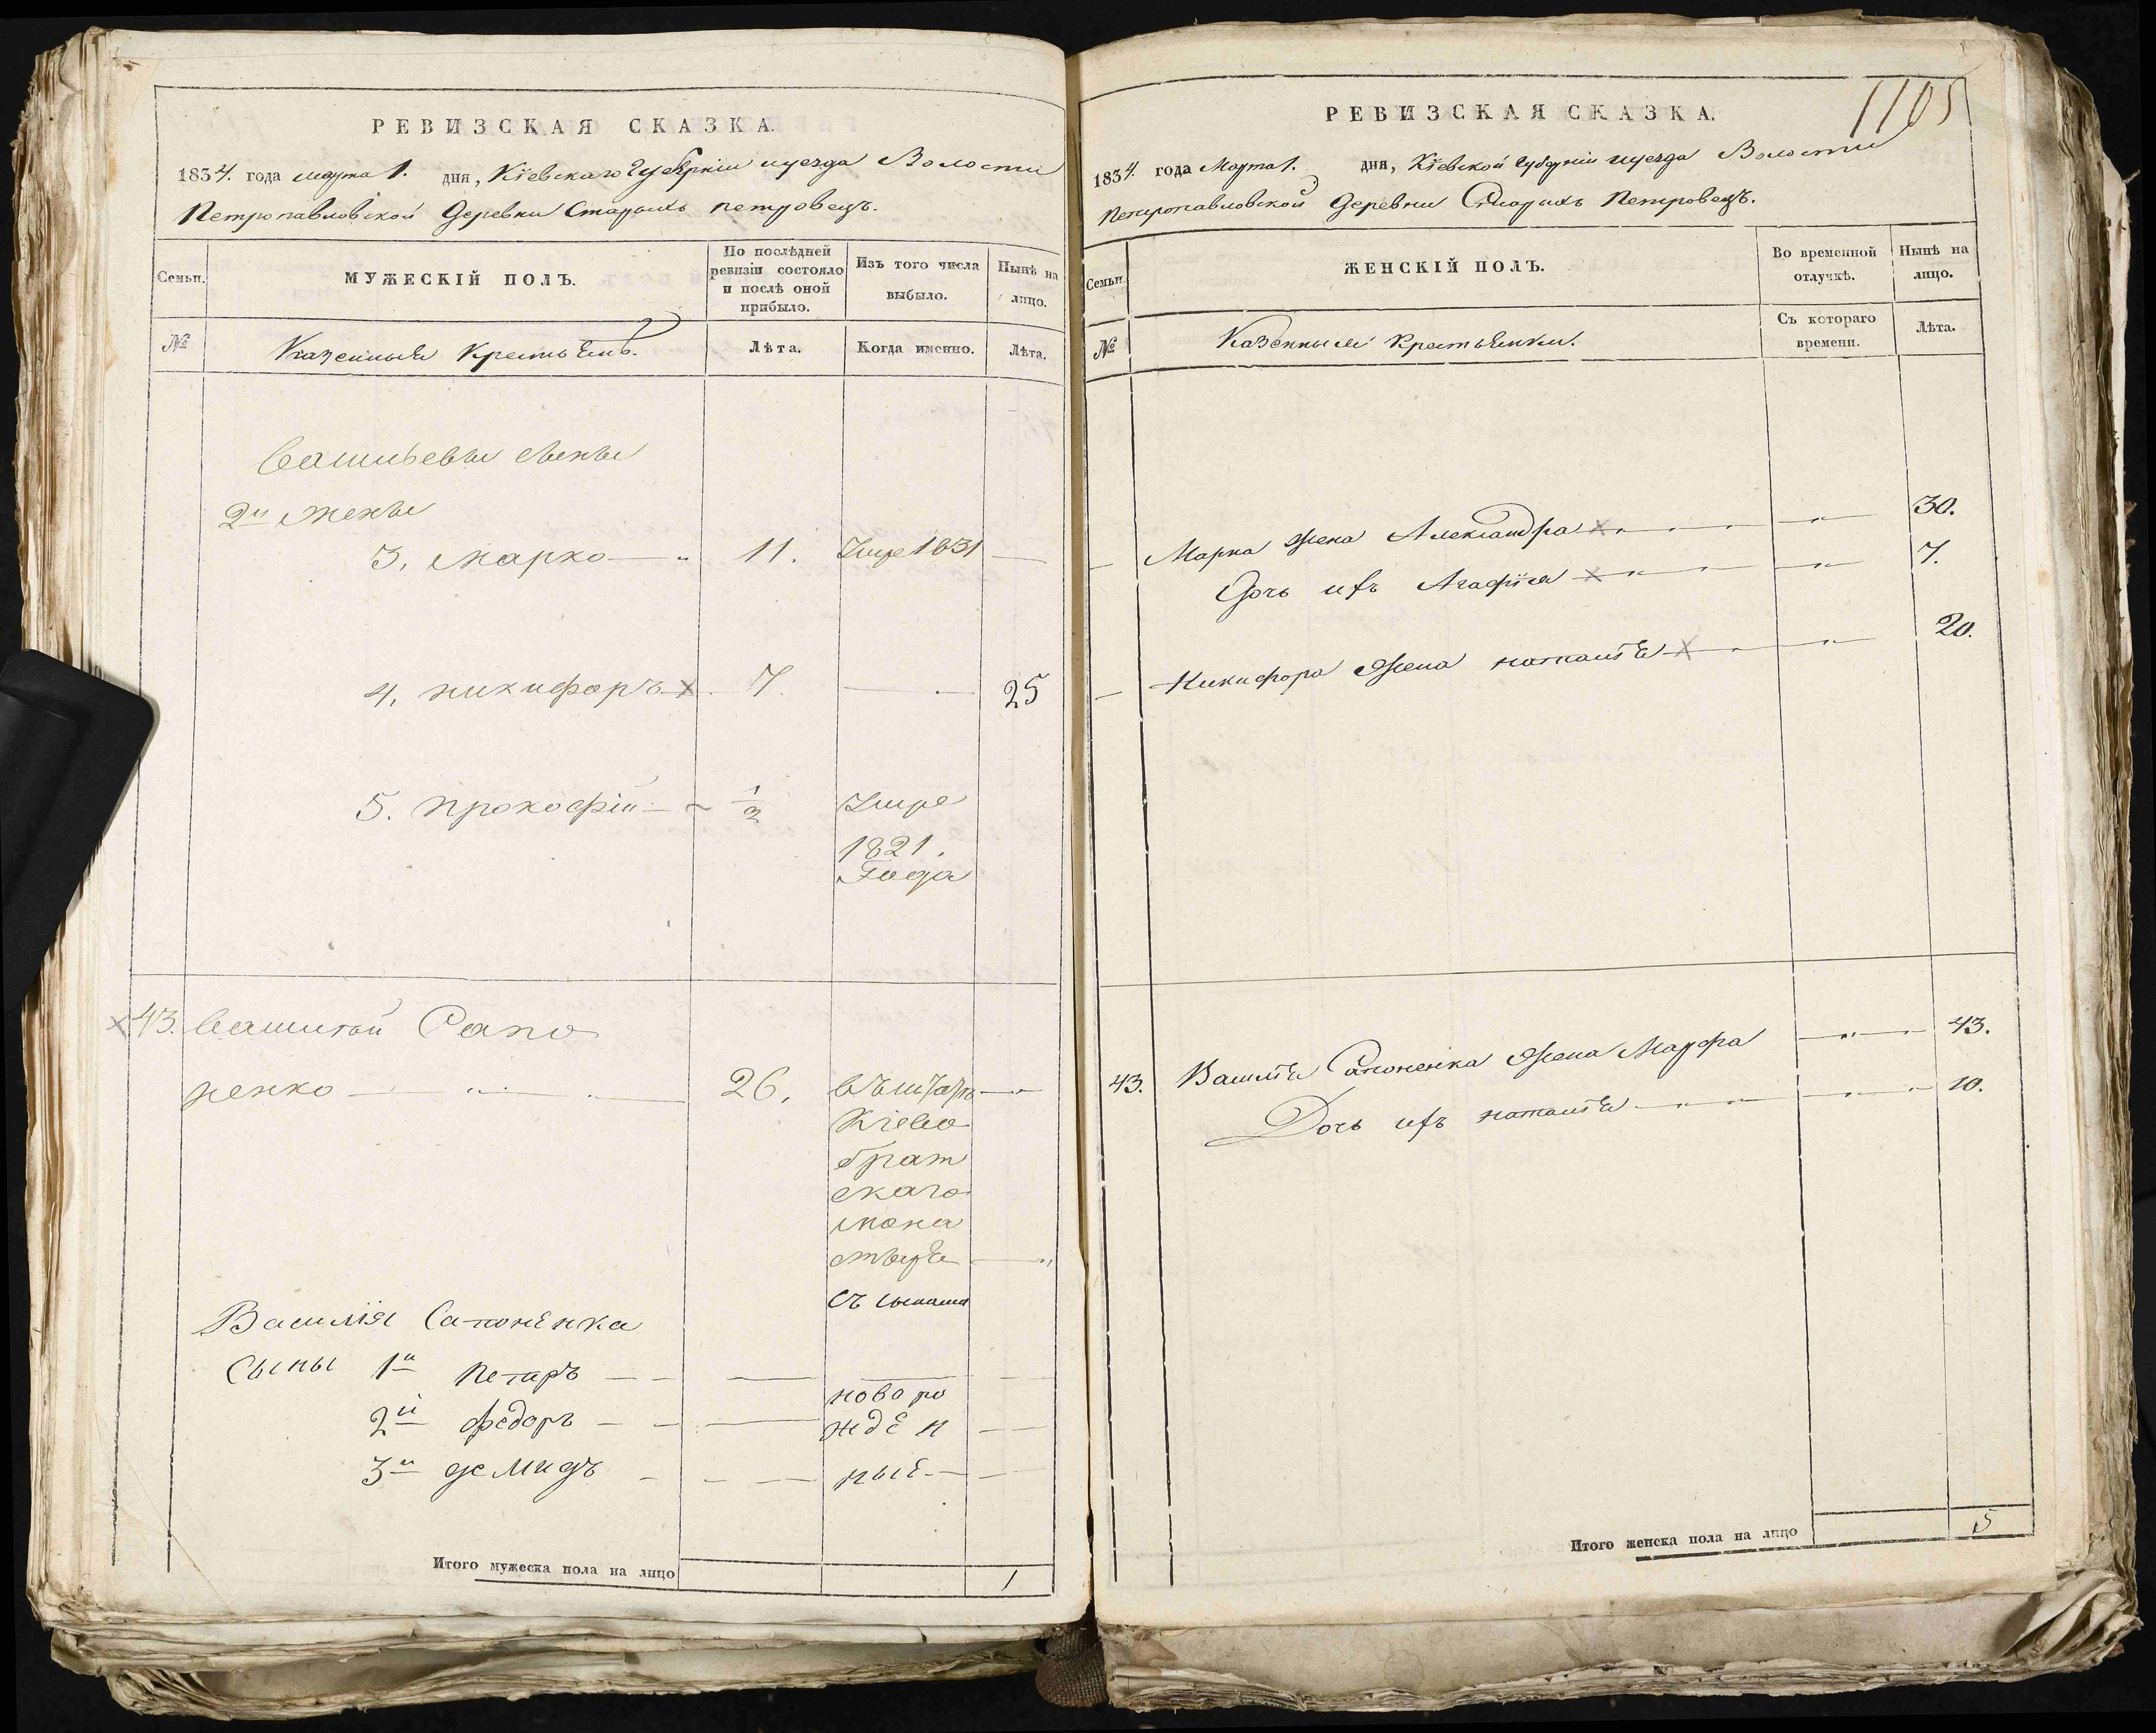 РЕВИЗСКАЯ СКАЗКА.
1834. года марта 1. дня, Кіевскаго Губерніи и уезда Волости
Петропавловской деревни Старыхъ петровецъ.
Семьи.
МУЖЕСКІЙ ПОЛЪ.
По послѣдней ревизіи состояло и послѣ оной прибыло.
Изъ того числа выбыло.
Нынѣ на лицо.
№
Казенныя Крестьянъ.
Лѣта.
Когда именно.
Лѣта.
Васильевы сыны
2й жены
3, Марко 11. Умре 1831
4, никифоръ x 7. 25
5. прокофій 1/2 Умре
1821.
Года
x 43. Василий Сапо
ненко 26.
Кіево
брат
скаго
мона
стыря
съ сынами
Василія Сапонѣнка
Сыны 1й Петаръ
2й федоръ
3й демидъ
новоро
ждѣн
ныѣ
Итого мужеска пола на лицо 1
1105
РЕВИЗСКАЯ СКАЗКА.
1834. года Марта 1. дня, Кіевской Губерніи и уезда Волости
Петропавловской деревни Старыхъ Петровецъ.
Семьи.
ЖЕНСКІЙ ПОЛЪ.
Во временной отлучкѣ.
Нынѣ на лицо.
№
Казенныя Крестьянки.
Съ котораго времени.
Лѣта.
Марка жена Александра x 30.
Дочь ихъ Агафія x 7.
Никифора жена наталія x 20.
43. Василія Сапоненка жена Марфа 43.
Дочь ихъ наталія 10.
Итого женска пола на лицо 5